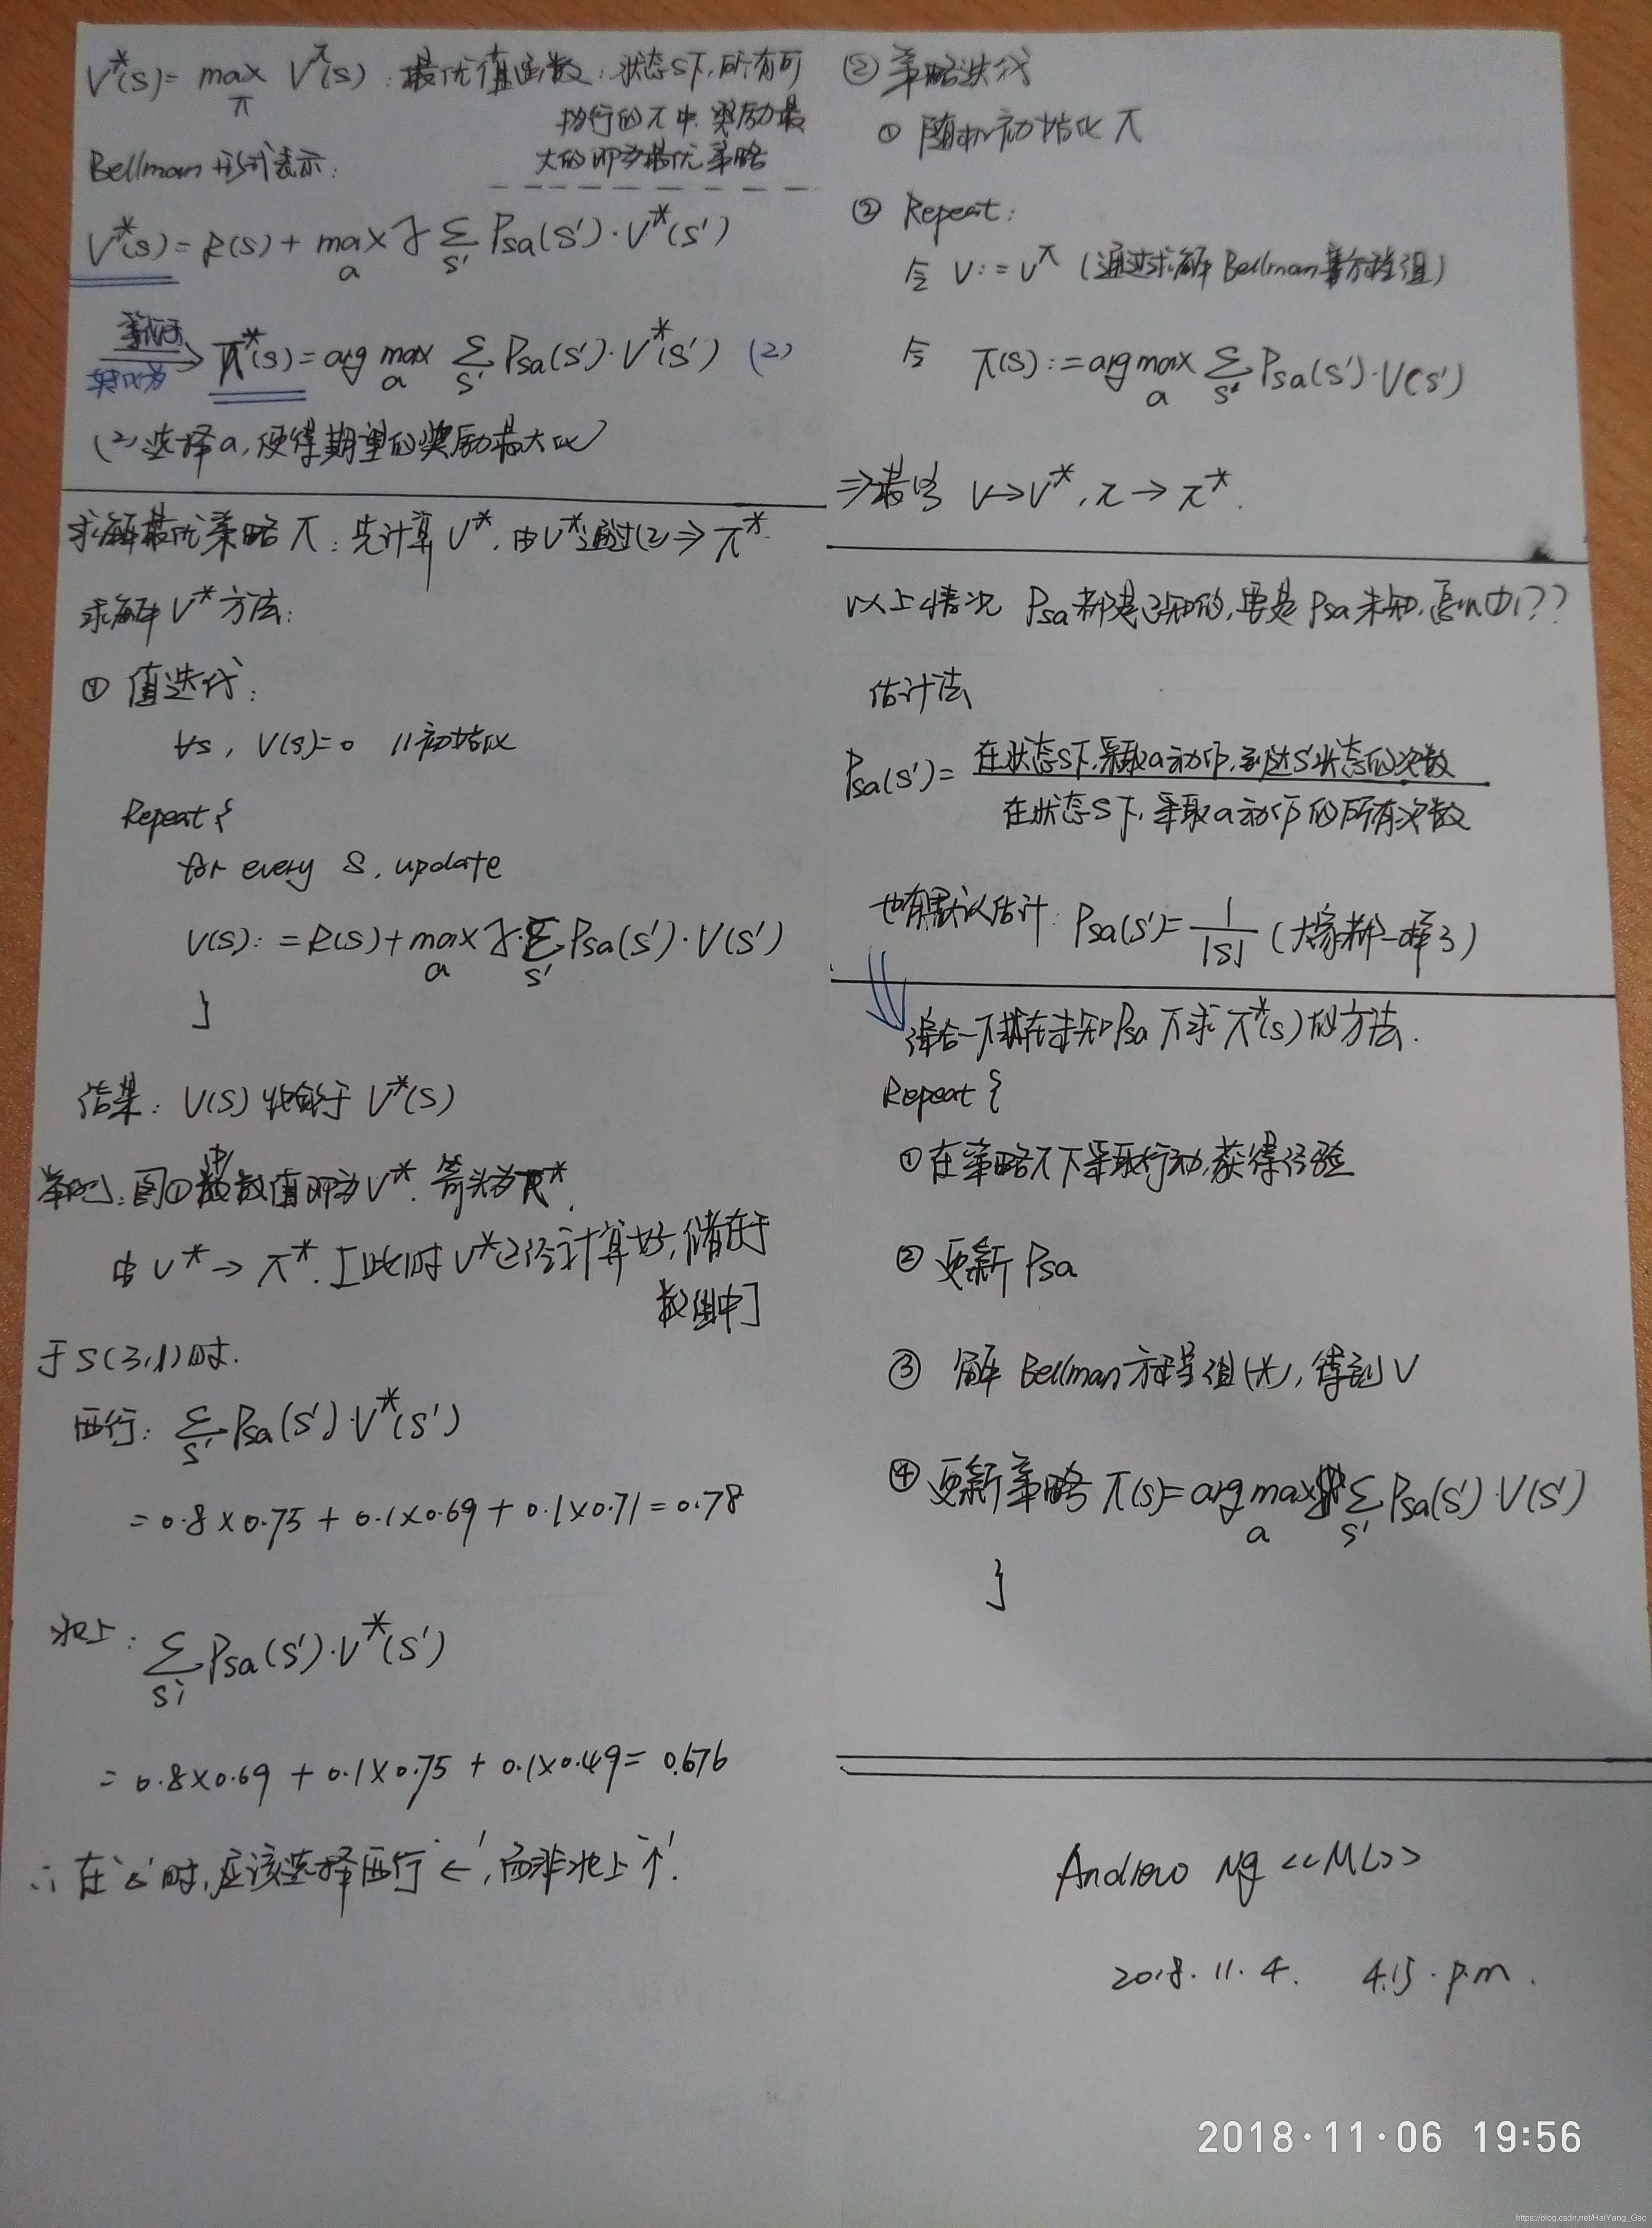 V*(s) = max_π V^π(s) : 最优值函数 : 状态S下,所有可
执行的π中,奖励最
大的即为最优策略
Bellman 形式表示:
V*(s) = R(s) + max_a γ Σ_s' Psa(s')·V*(s')
π*(s) = arg max_a Σ_s' Psa(s')·V*(s') (2)
(2) 选择a,使得期望的奖励最大化
求解最优策略π: 先计算V*, 由V*通过(2) ⇒ π*
求解V*方法:
① 值迭代:
∀s, V(s)=0 //初始化
Repeat {
for every S, update
V(s) := R(s) + max_a γ·Σ_s' Psa(s')·V(s')
}
结果: V(s) 收敛于 V*(s)
举例: 图①中数值即为V*. 箭头为π*.
由 V* → π*. [此时V*已经计算好,储存于
数组中]
于S(3,1)时.
西行: Σ_s' Psa(s')·V*(s')
= 0.8×0.75 + 0.1×0.69 + 0.1×0.71 = 0.78
北上: Σ_si Psa(s')·V*(s')
= 0.8×0.69 + 0.1×0.75 + 0.1×0.49 = 0.676
∴ 在 时,应该选择西行'←',而非北上'↑'.
② 策略迭代
① 随机初始化 π
② Repeat:
令 V := V^π (通过求解Bellman方程组)
令 π(s) := arg max_a Σ_s' Psa(s')·V(s')
⇒最终 V→V*, π→π*.
以上情况 Psa都是已知的,要是Psa未知,怎么办??
估计法
Psa(s') = 在状态S下,采取a动作,到达S'状态的次数
在状态S下,采取a动作的所有次数
也有默认估计: Psa(s') = 1/|S| (大家都一样了)
综合一下 在未知Psa下求π*(s)的方法.
Repeat {
① 在策略π下采取行动,获得经验
② 更新 Psa
③ 解 Bellman 方程组(*), 得到 V
④ 更新策略 π(s) = arg max_a Σ_s' Psa(s')·V(s')
}
Andrew Ng <<ML>>
2018.11.4. 4:15.p.m.
2018·11·06 19:56
https://blog.csdn.net/HaiYang_Gao